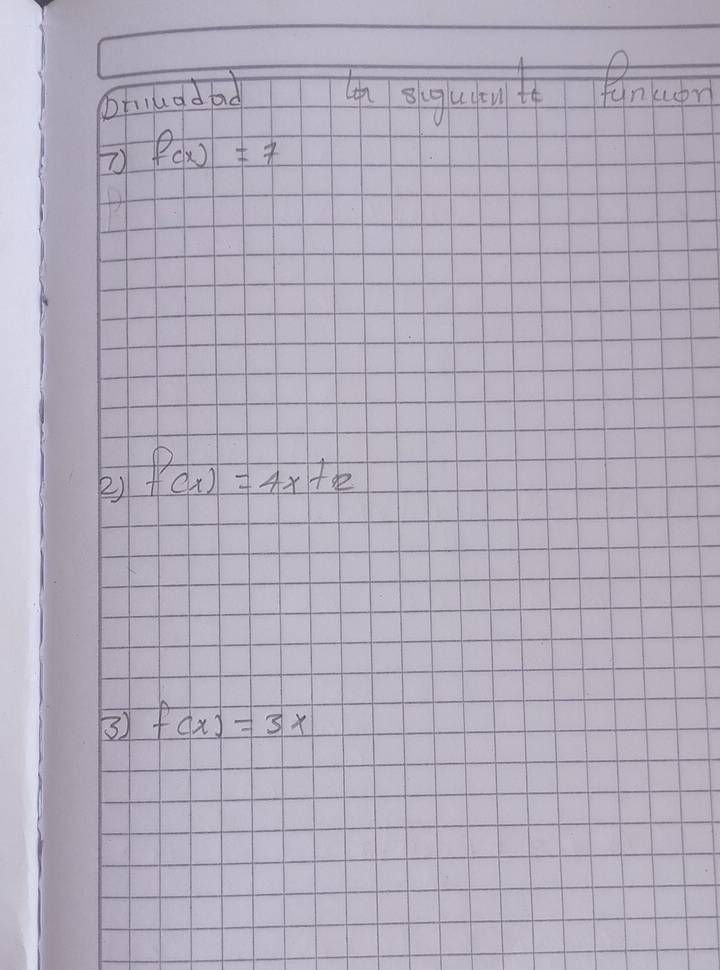 la siguiente funcion
1) f(x) = 7
2) f(x) = 4x+2
3) f(x) = 3x